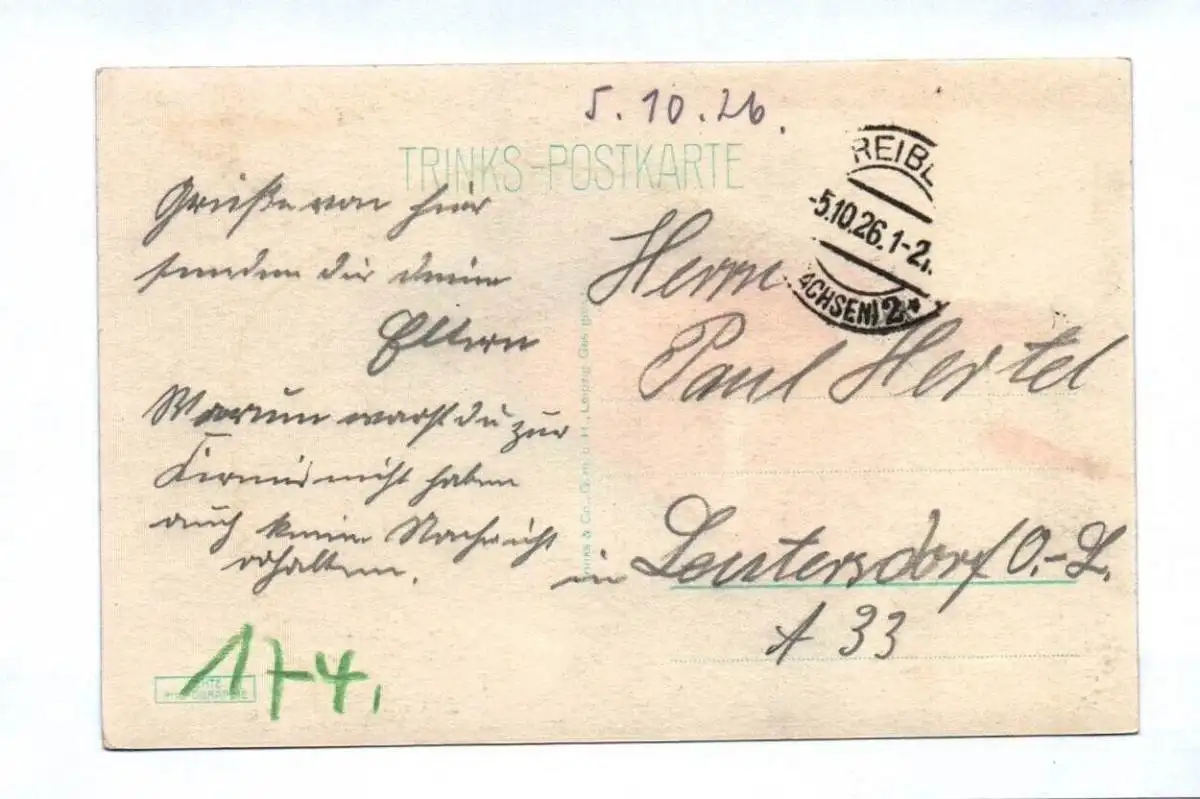 5.10.26.
TRINKS-POSTKARTE
REIBE
-5.10.26.1-2
ACHSEN) 2 *
Grüße von hier
senden dir deine
Eltern
Warum warst du zur
Kirmis nicht haben
auch keine Nachricht
erhalten.
Herrn
Paul Hertel
in Leutersdorf O.-L.
A 33
Trinks & Co., G.m.b.H., Leipzig Ges. gesch.
174.
ECHTE
PHOTOGRAPHIE